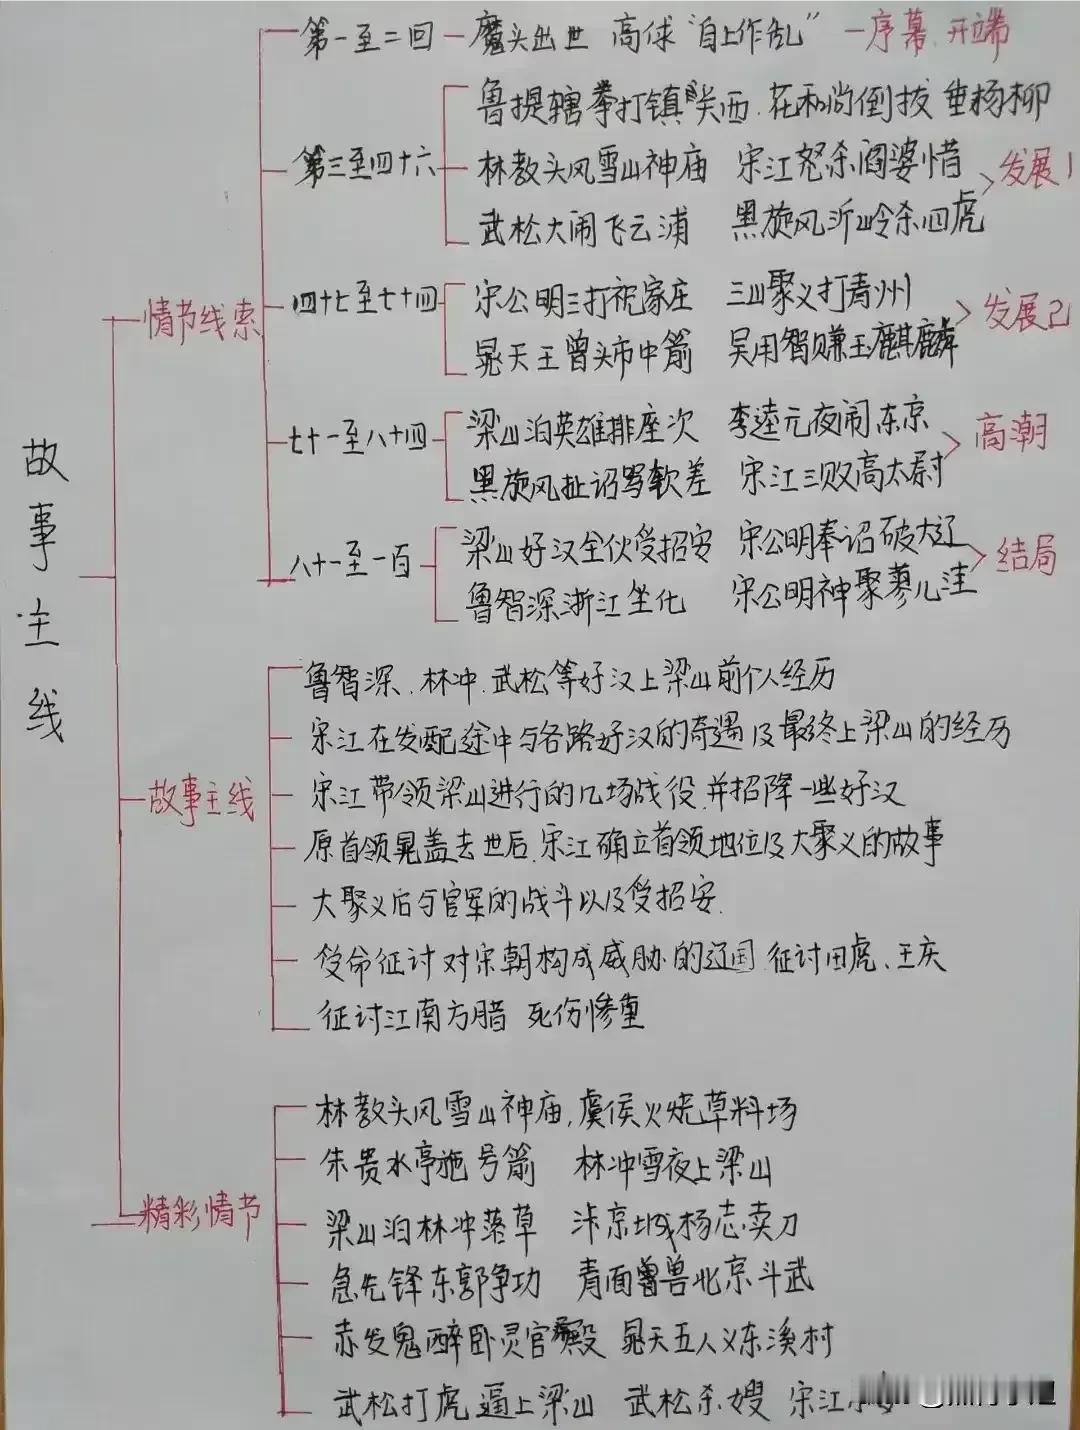 故事主线
情节线索
第一至二回 魔头出世 高俅"自上作乱" 序幕、开端
第三至四十六
鲁提辖拳打镇关西.花和尚倒拔垂杨柳
林教头风雪山神庙 宋江怒杀阎婆惜
武松大闹飞云浦 黑旋风沂岭杀四虎
发展1
四十七至七十四
宋公明三打祝家庄 三山聚义打青州
晁天王曾头市中箭 吴用智赚玉麒麟
发展2
七十一至八十四
梁山泊英雄排座次 李逵元夜闹东京
黑旋风扯诏骂钦差 宋江三败高太尉
高潮
八十一至一百
梁山好汉全伙受招安 宋公明奉诏破大辽
鲁智深浙江坐化 宋公明神聚蓼儿洼
结局
故事主线
鲁智深、林冲、武松等好汉上梁山前个人经历
宋江在发配途中与各路好汉的奇遇及最终上梁山的经历
宋江带领梁山进行的几场战役,并招降一些好汉
原首领晁盖去世后,宋江确立首领地位及大聚义的故事
大聚义后与官军的战斗以及受招安.
受命征讨对宋朝构成威胁的辽国,征讨田虎、王庆
征讨江南方腊 死伤惨重
精彩情节
林教头风雪山神庙,虞侯火烧草料场
朱贵水亭施号箭 林冲雪夜上梁山
梁山泊林冲落草 汴京城杨志卖刀
急先锋东郭争功 青面兽北京斗武
赤发鬼醉卧灵官殿 晁天五人义东溪村
武松打虎逼上梁山 武松杀嫂 宋江